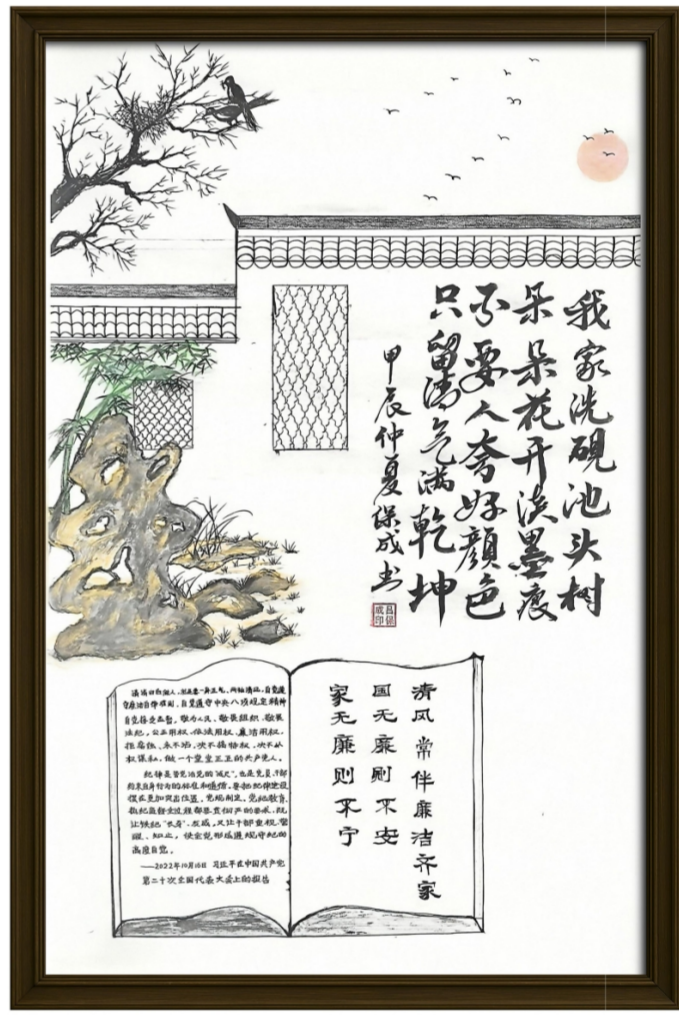 我家洗砚池头树
朵朵花开淡墨痕
不要人夸好颜色
只留清气满乾坤
甲辰仲夏保成书
吕保成印
清风常伴廉洁齐家
国无廉则不安
家无廉则不宁
清清白白做人，
一身正气，两袖清风，自觉遵
守廉洁自律准则，自觉遵守中央八项规定精神
自觉接受监督，敬为人民、敬畏组织、敬畏
法纪，公正用权、依法用权、廉洁用权，
拒腐蚀、永不沾，决不搞特权，决不以
权谋私，做一个堂堂正正的共产党人。
纪律是管党治党的“戒尺”，也是党员、干部
约束自身行为的标准和遵循。要把纪律建设
摆在更加突出位置，党规制定、党纪教育、
执纪监督全过程都要贯彻严的要求，既
让铁纪“长牙”、发威，又让干部重视、警
醒、知止，使全党形成遵规守纪的
高度自觉。
——2022年10月16日 习近平在中国共产党
第二十次全国代表大会上的报告